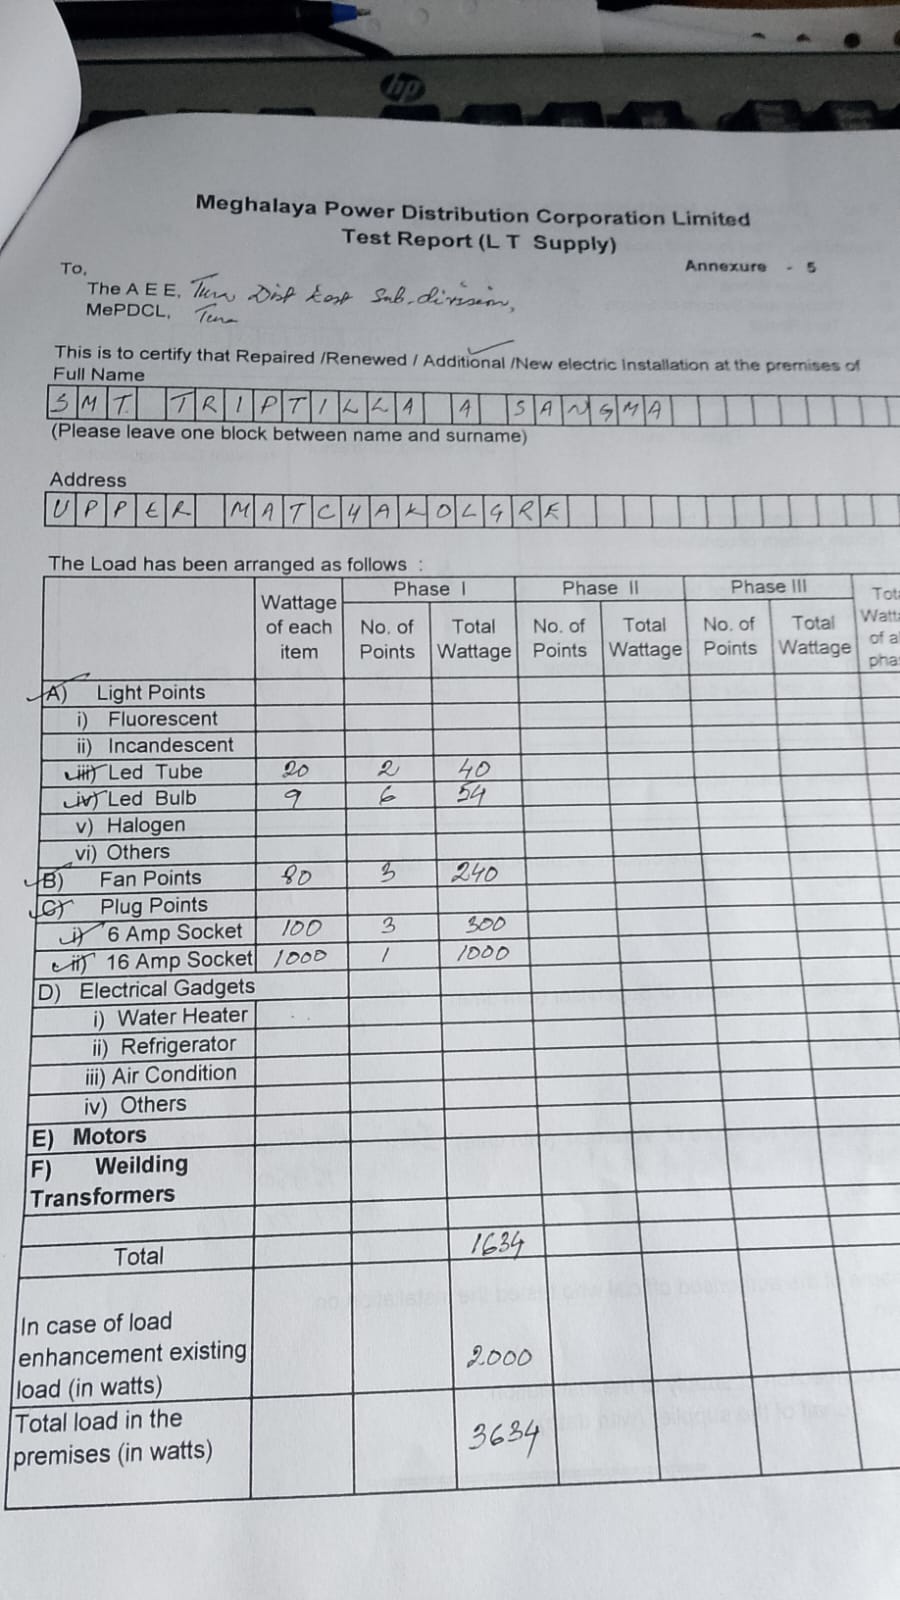 hp
Meghalaya Power Distribution Corporation Limited
Test Report (L T Supply)
Annexure - 5
To,
The A E E, Tura Dist East Sub-division,
MePDCL, Tura
This is to certify that Repaired /Renewed / Additional /New electric Installation at the premises of
Full Name
SMT. TRIPTILLA A SANGMA
(Please leave one block between name and surname)
Address
UPPER MATCHAKOLGRE
The Load has been arranged as follows :
Wattage of each item Phase I Phase II Phase III
No. of Points Total Wattage No. of Points Total Wattage No. of Points Total Wattage of
A) Light Points
i) Fluorescent
ii) Incandescent
iii) Led Tube 20 2 40
iv) Led Bulb 9 6 54
v) Halogen
vi) Others
B) Fan Points 80 3 240
C) Plug Points
i) 6 Amp Socket 100 3 300
ii) 16 Amp Socket 1000 1 1000
D) Electrical Gadgets
i) Water Heater
ii) Refrigerator
iii) Air Condition
iv) Others
E) Motors
F) Weilding
Transformers
Total 1634
In case of load
enhancement existing 2000
load (in watts)
Total load in the 3634
premises (in watts)